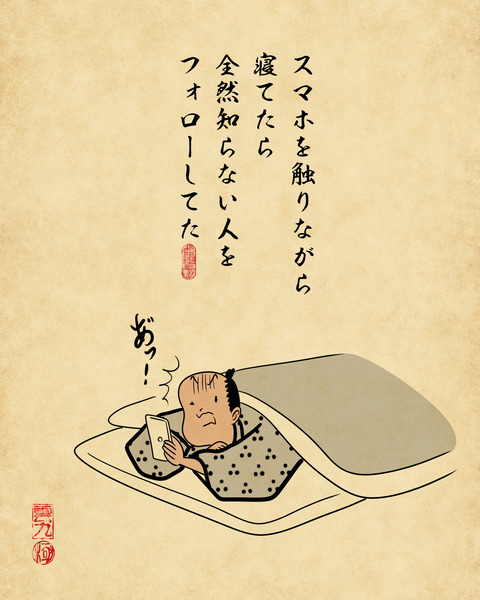 スマホを触りながら
寝てたら
全然知らない人を
フォローしてた
あッ!